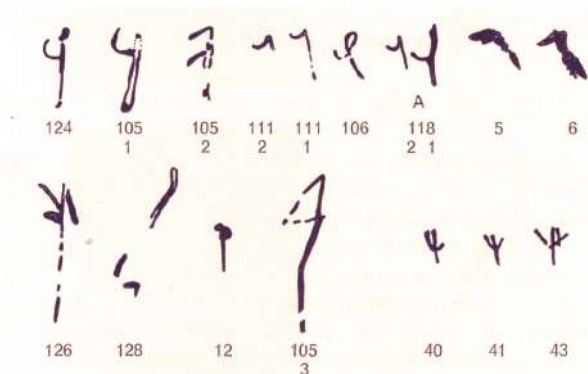 A
124 105 105 111 111 106 118 5 6
1 2 2 1 2 1
126 128 12 105 40 41 43
3